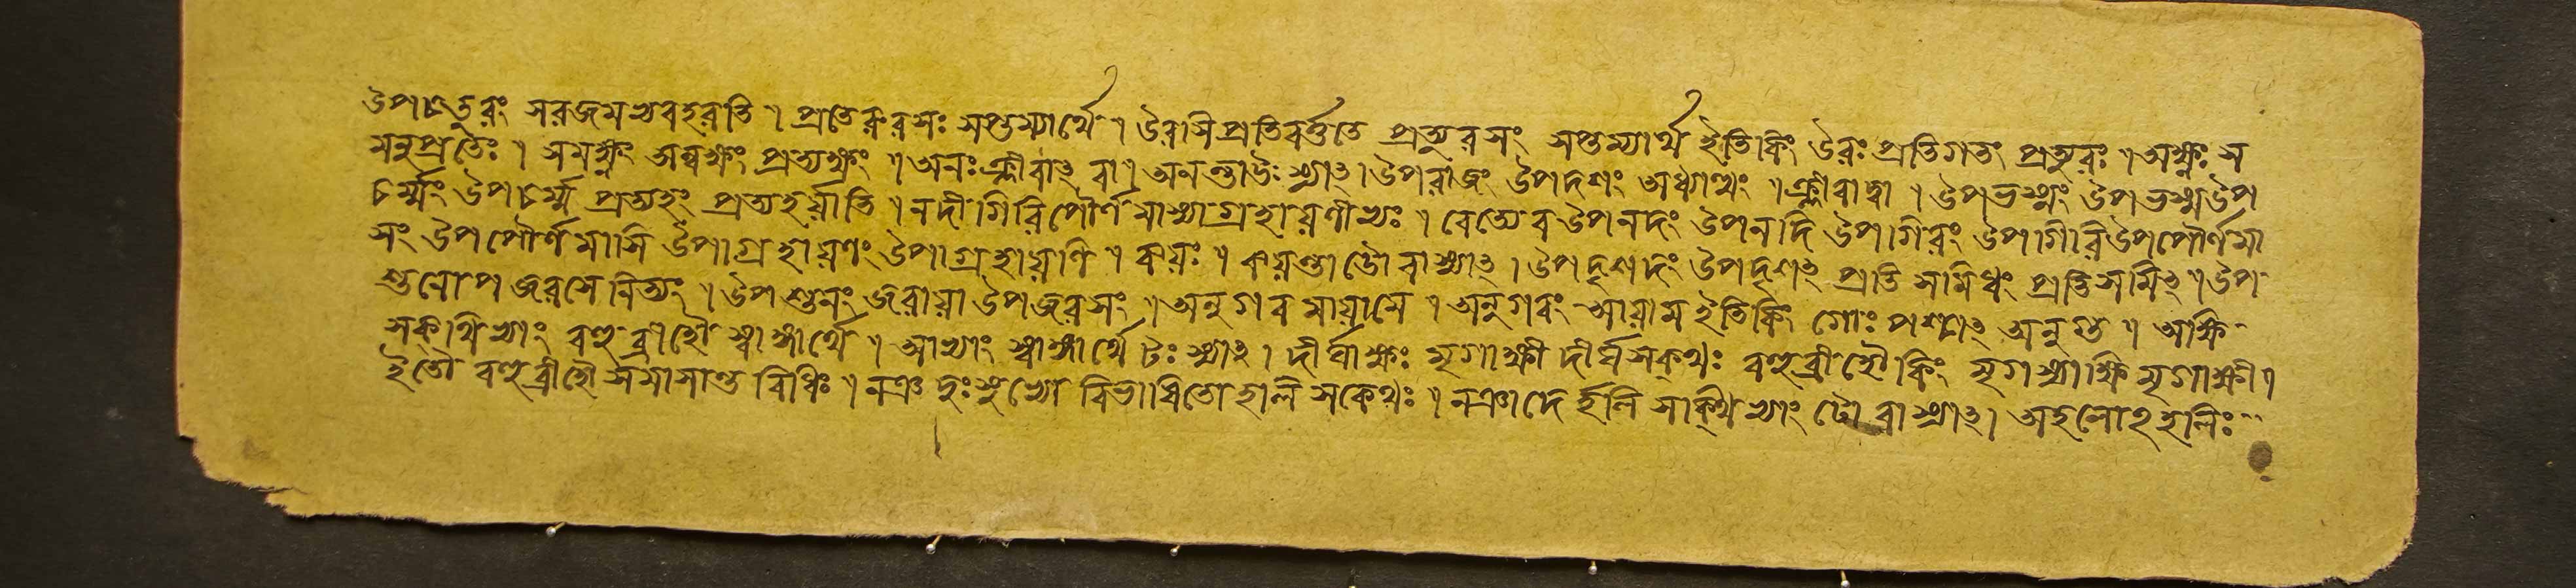 উপচতুরং সরজমভ্যবহরতি । প্রতেরুরসঃ সপ্তম্যার্থে । উরসিপ্রতিবর্ত্ততে প্রত্যুরসং সপ্তম্যার্থ ইতিকিং উরঃ প্রতিগতং প্রত্যুরঃ । অক্ষ্ণঃ স
মনুপ্রতেঃ । সমক্ষং অন্বক্ষং প্রত্যক্ষং । অনঃ ক্লীবাৎ বা । অনন্তাডঃ স্যাৎ । উপরাজং উপদশং অধ্যাত্মং । ক্লীবাদ্বা । উপভস্মং উপভস্মউপ
চর্ম্মং উপচর্ম্ম প্রত্যহং প্রত্যহর্য়াতি । নদীগিরিপৌর্ণমাস্যাগ্রহায়ণীভ্যঃ । বেত্যেব উপনদং উপনদি উপগিরং উপগিরিউপপৌর্ণমা
সং উপপৌর্ণমাসি উপাগ্রহায়ণং উপাগ্রহায়ণি । ঝয়ঃ । ঝয়ন্তাডৌ বাস্যাৎ । উপদৃশদং উপদৃশৎ প্রতি সমিধং প্রতিসমিৎ । উপ
শুনোপজরসে নিত্যং । উপশুনং জরায়া উপজরসং । অনুগবমায়ামে । অনুগবং আয়াম ইতিকিং গোঃ পশ্চাৎ অনুগু । অক্ষি
সক্থিভ্যাং বহুব্রীহৌ স্বাঙ্গার্থে । আভ্যাং স্বাঙ্গার্থে টঃ স্যাৎ । দীর্ঘাক্ষঃ মৃগাক্ষী দীর্ঘসক্থঃ বহুব্রীহৌ কিং মৃগস্যাক্ষি মৃগাক্ষী ।
ইতো বহুব্রীহৌ সমাসান্ত বিধিঃ । নঞ দুঃসুভ্যো বিভাষিতোহলি সক্থেঃ । নঞাদে র্হলি সক্থিভ্যাং টো বা স্যাৎ । অহলোঽহলিঃ